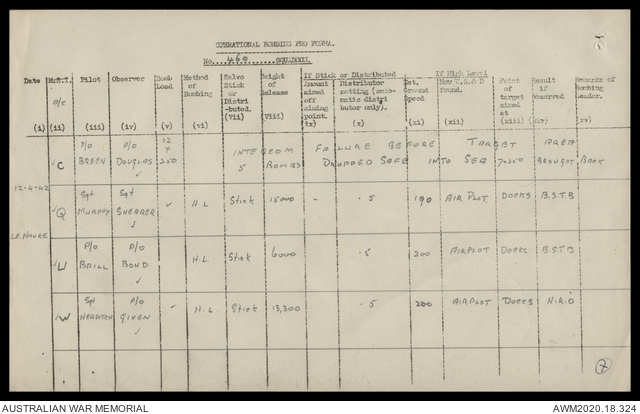 OPERATIONAL BOMBING PRO FORMA.
No. 460 SQUADRON.
If Stick or Distributed If High Level
Date Pilot Observer Bomb Load Method of Bombing Salvo Stick or Distri-buted. Height of Release Amount aimed off aiming point. Distributor setting (auto-matic distri butor only). Est. Ground Speed How U.S.O D found. Point of target aimed at Result if observed Remarks of Bombing Leader.
A/c
(i) (ii) (iii) (iv) (v) (vi) (vii) (viii) ix) (x) (xi) (xii) (xiii) (xv)
P/O P/O 12
C BREEN DOUGLAS 250 INTERCOM FAILURE BEFORE TARGET AREA
5 BOMBS DROPPED SAFE INTO SEA 7x250 BROUGHT BACK
12.4.42
Sgt Sgt
Q MURPHY SHEARER H.L Stick 15000 .5 190 AIR PLOT DOCKS B.S.T.B
LE HAVRE
P/O P/O
U BRILL BOND H.L. Stick 6000 .5 200 AIRPLOT DOCKS B.S.T.B
Sgt P/O
W GIVEN H.L. Stick 13,300 .5 200 AIRPLOT DOCKS N.R.O
AUSTRALIAN WAR MEMORIAL AWM2020.18.324